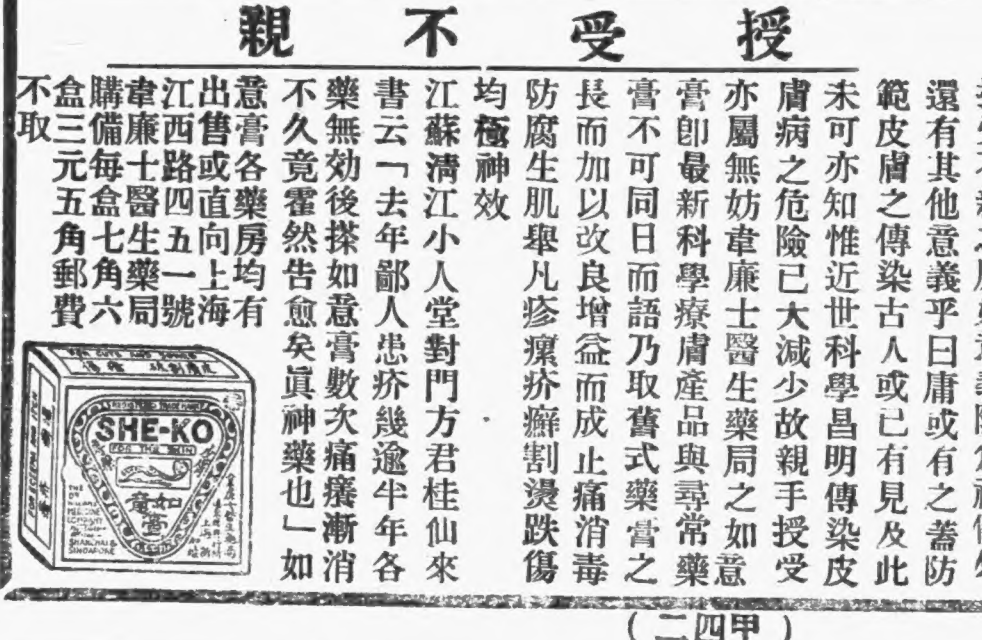 授受不親
還有其他意義乎曰庸或有之蓋防
範皮膚之傳染古人或已有見及此
未可亦知惟近世科學昌明傳染皮
膚病之危險已大減少故親手授受
亦屬無妨韋廉士醫生藥局之如意
膏卽最新科學療膚產品與尋常藥
膏不可同日而語乃取舊式藥膏之
長而加以改良增益而成止痛消毒
防腐生肌舉凡疹瘰疥癬割燙跌傷
均極神效
江蘇淸江小人堂對門方君桂仙來
書云「去年鄙人患疥幾逾半年各
藥無効後搽如意膏數次痛癢漸消
不久竟霍然告愈矣眞神藥也」如
意膏各藥房均有
出售或直向上海
江西路四五一號
韋廉士醫生藥局
購備每盒七角六
盒三元五角郵費
不取
SHE-KO
FOR THE SKIN
如意膏
SHANGHAI &
SINGAPORE
(二四甲)